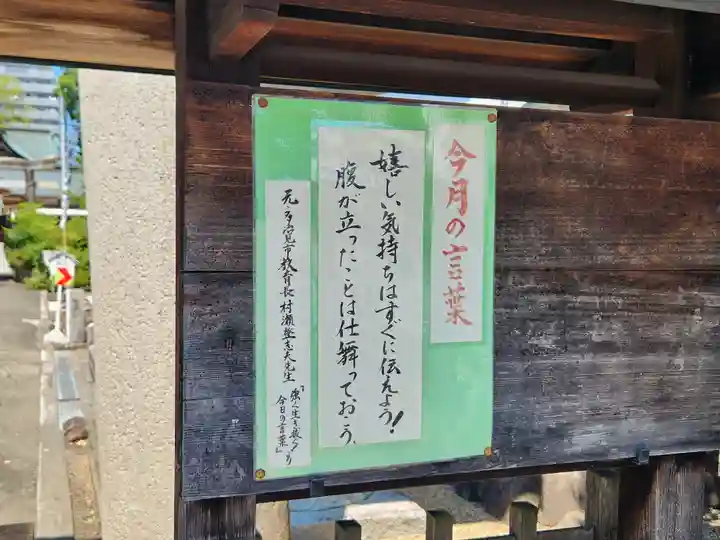 今月の言葉
嬉しい気持ちはすぐに伝えよう!
腹が立ったことは仕舞っておこう、
元・多治見市教育長村瀬登志夫先生
『強く生き抜く
今日の言葉』